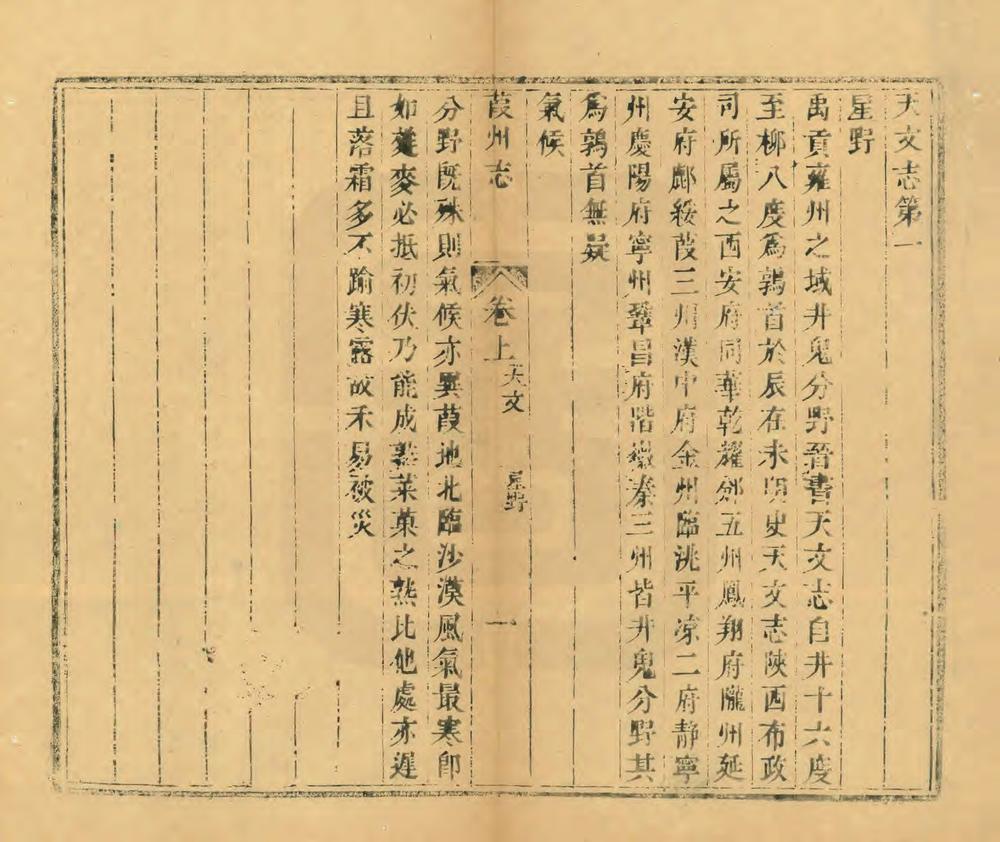 天文志第一
星野
禹貢雍州之域井鬼分野晉書天文志自井十六度
至柳八度爲鶉首於辰在未明史天文志陝西布政
司所屬之西安府同華乾耀邠五州鳳翔府隴州延
安府鄜綏葭三州漢中府金州臨洮平凉二府静寧
州慶陽府寧州鞏昌府階徽秦三州皆井鬼分野其
爲鶉首無疑
氣候
葭州志 卷上 天文 星野 一
分野既殊則氣候亦異葭地北臨沙漠風氣最寒卽
如麰麥必抵初伏乃能成熟菜菓之熟比他處亦遲
且落霜多不踰寒露故禾易被災